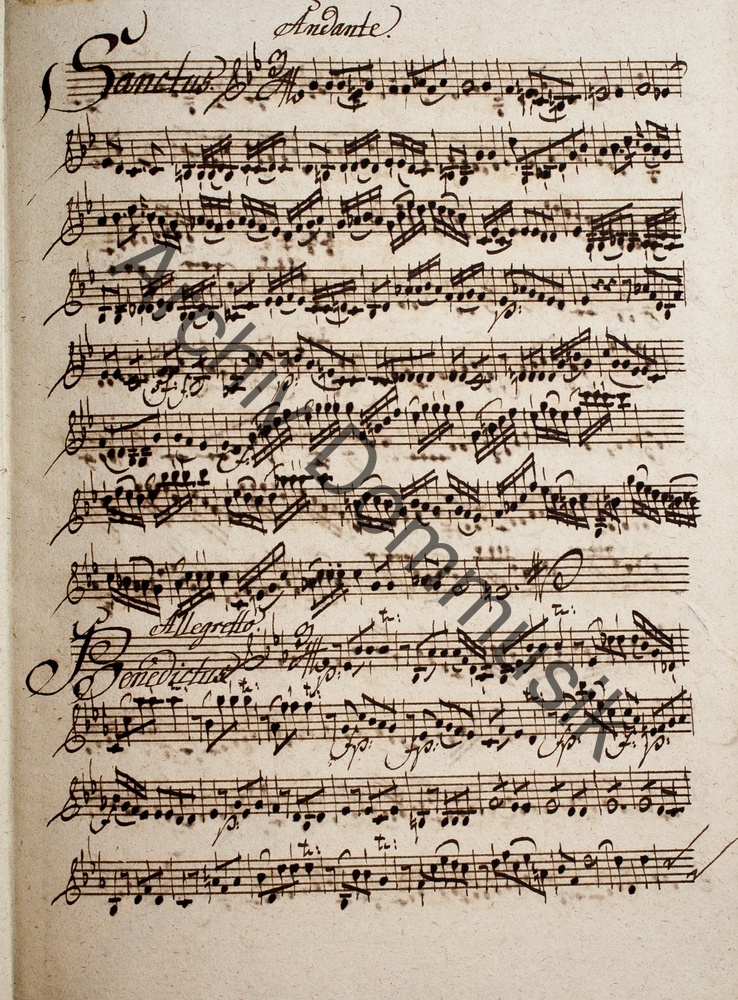 Andante.
Sanctus.
Allegretto.
Benedictus
Archiv Dommusik